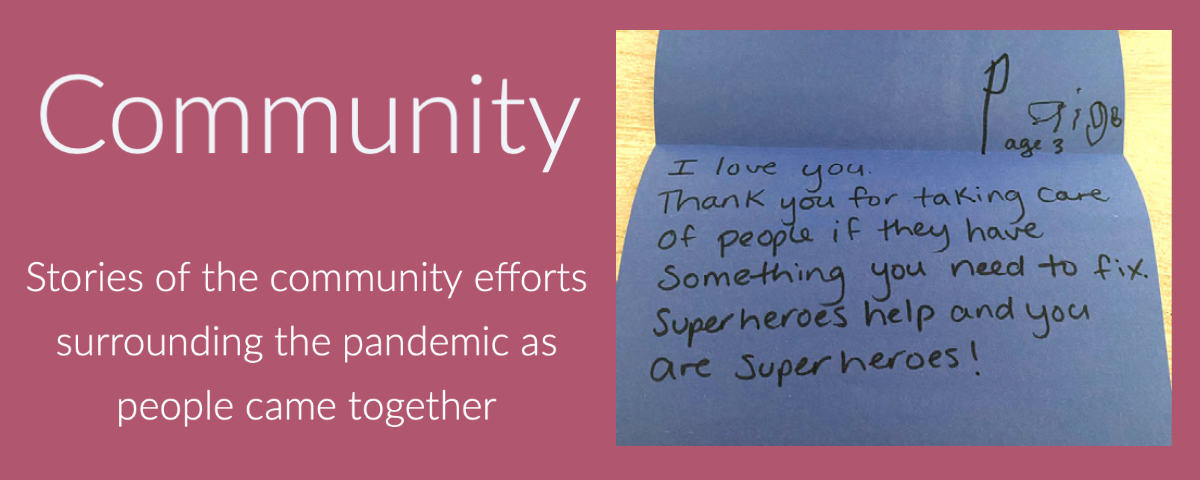 Community
Stories of the community efforts
surrounding the pandemic as
people came together
Paige
age 3
I love you.
Thank you for taking care
of people if they have
something you need to fix.
Superheroes help and you
are Superheroes!